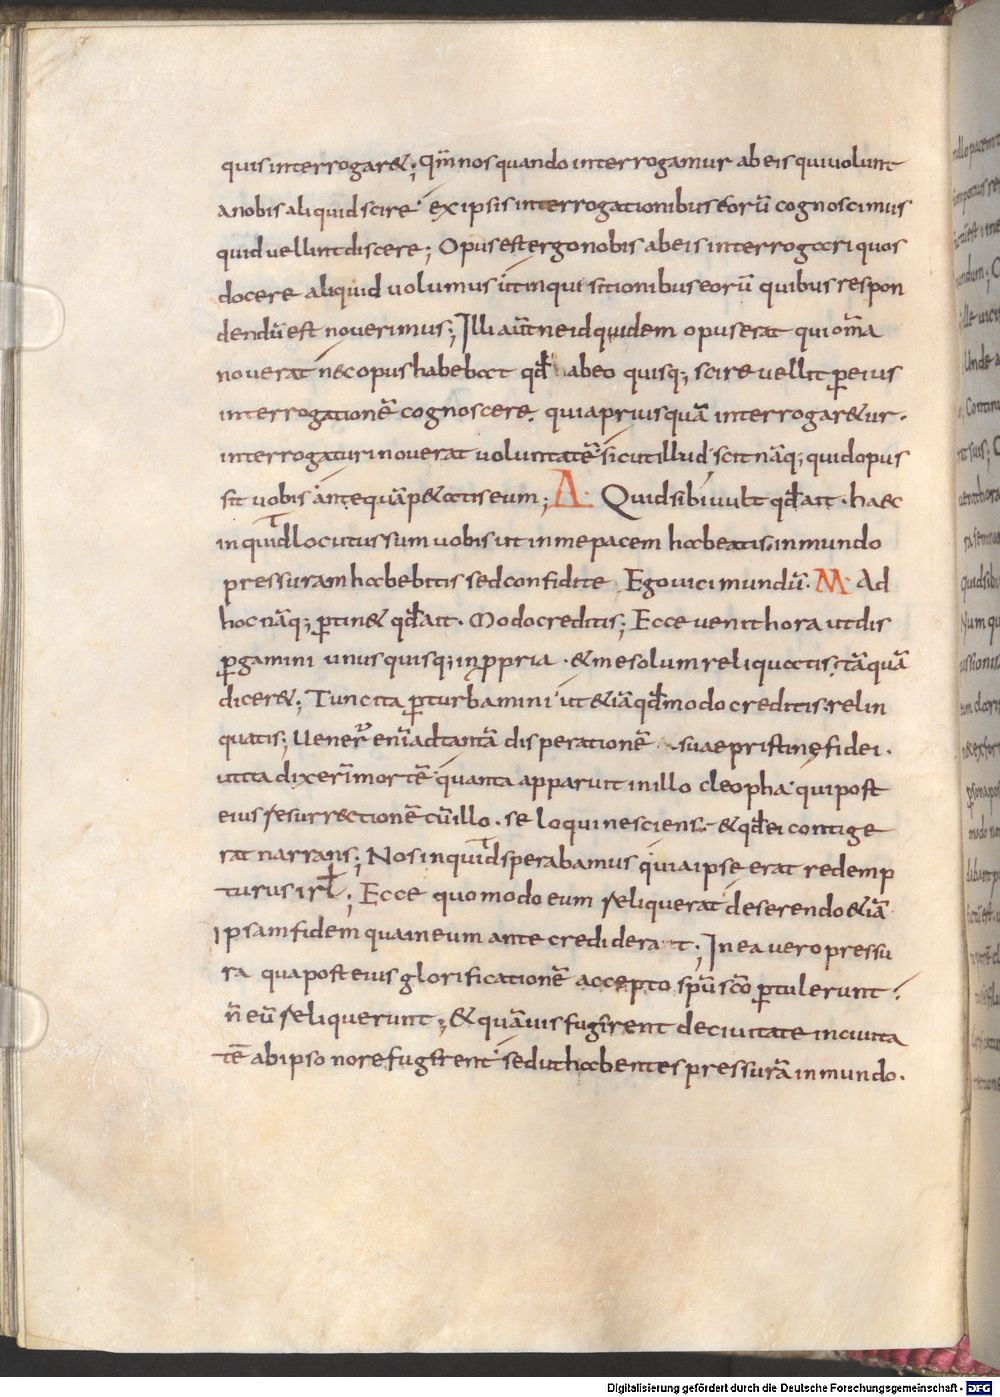 quis interrogar&; qm̄ nos quando interrogamur ab eis qui uolunt
a nobis aliquid scire ex ipsis interrogationibus eorū cognoscimus
quid uellint discere; Opus est ergo nobis ab eis interrogari quos
docere aliquid uolumus ut inquisitionibus eorū quibus respon
dendū est nouerimus; Illi aūt ne id quidem opus erat qui om̄a
nouerat nec opus habebat qđ ab eo quisq; scire uellit ꝑ eius
interrogationē cognoscere. quia prius quā interrogar&ur.
interrogaturi nouerat uoluntatē sicut illud scit nāq; quid opus
sit uobis ante quā p&atis eum; A. Quid sibi uult qđ ait. haec
inquid locutus sum uobis ut in me pacem habeatis. in mundo
pressuram habebitis sed confidite Ego uici mundū. M. Ad
hoc nāq; ꝑtin& qđ ait. Modo creditis; Ecce uenit hora ut dis
ꝑgamini unus quisq; in ꝓpria. & me solum reliquatis. tāquā
dicer&; Tunc ita ꝑturbamini ut & iā qđ modo creditis. relin
quatis; Uener̄ enī ad tantā disperationē suae pristinę fidei.
ut ita dixerī mortē quanta apparuit in illo cleopha qui post
eius resurrectionē cū illo. se loqui nesciens. & qđ ei contige
rat narrans; Nos inquid sperabamus quia ipse erat redemp
turus irl̄; Ecce quomodo eum reliquerat deserendo & iā
ipsam fidem qua in eum ante crediderat; In ea uero pressu
ra qua post eius glorificationē accepto sp̄u sc̄o ꝑtulerunt.
n̄ eū reliquerunt; & quāuis fugirent de ciuitate in ciuita
tē ab ipso non refugirent sed ut habentes pressurā in mundo.
Digitalisierung gefördert durch die Deutsche Forschungsgemeinschaft - DFG